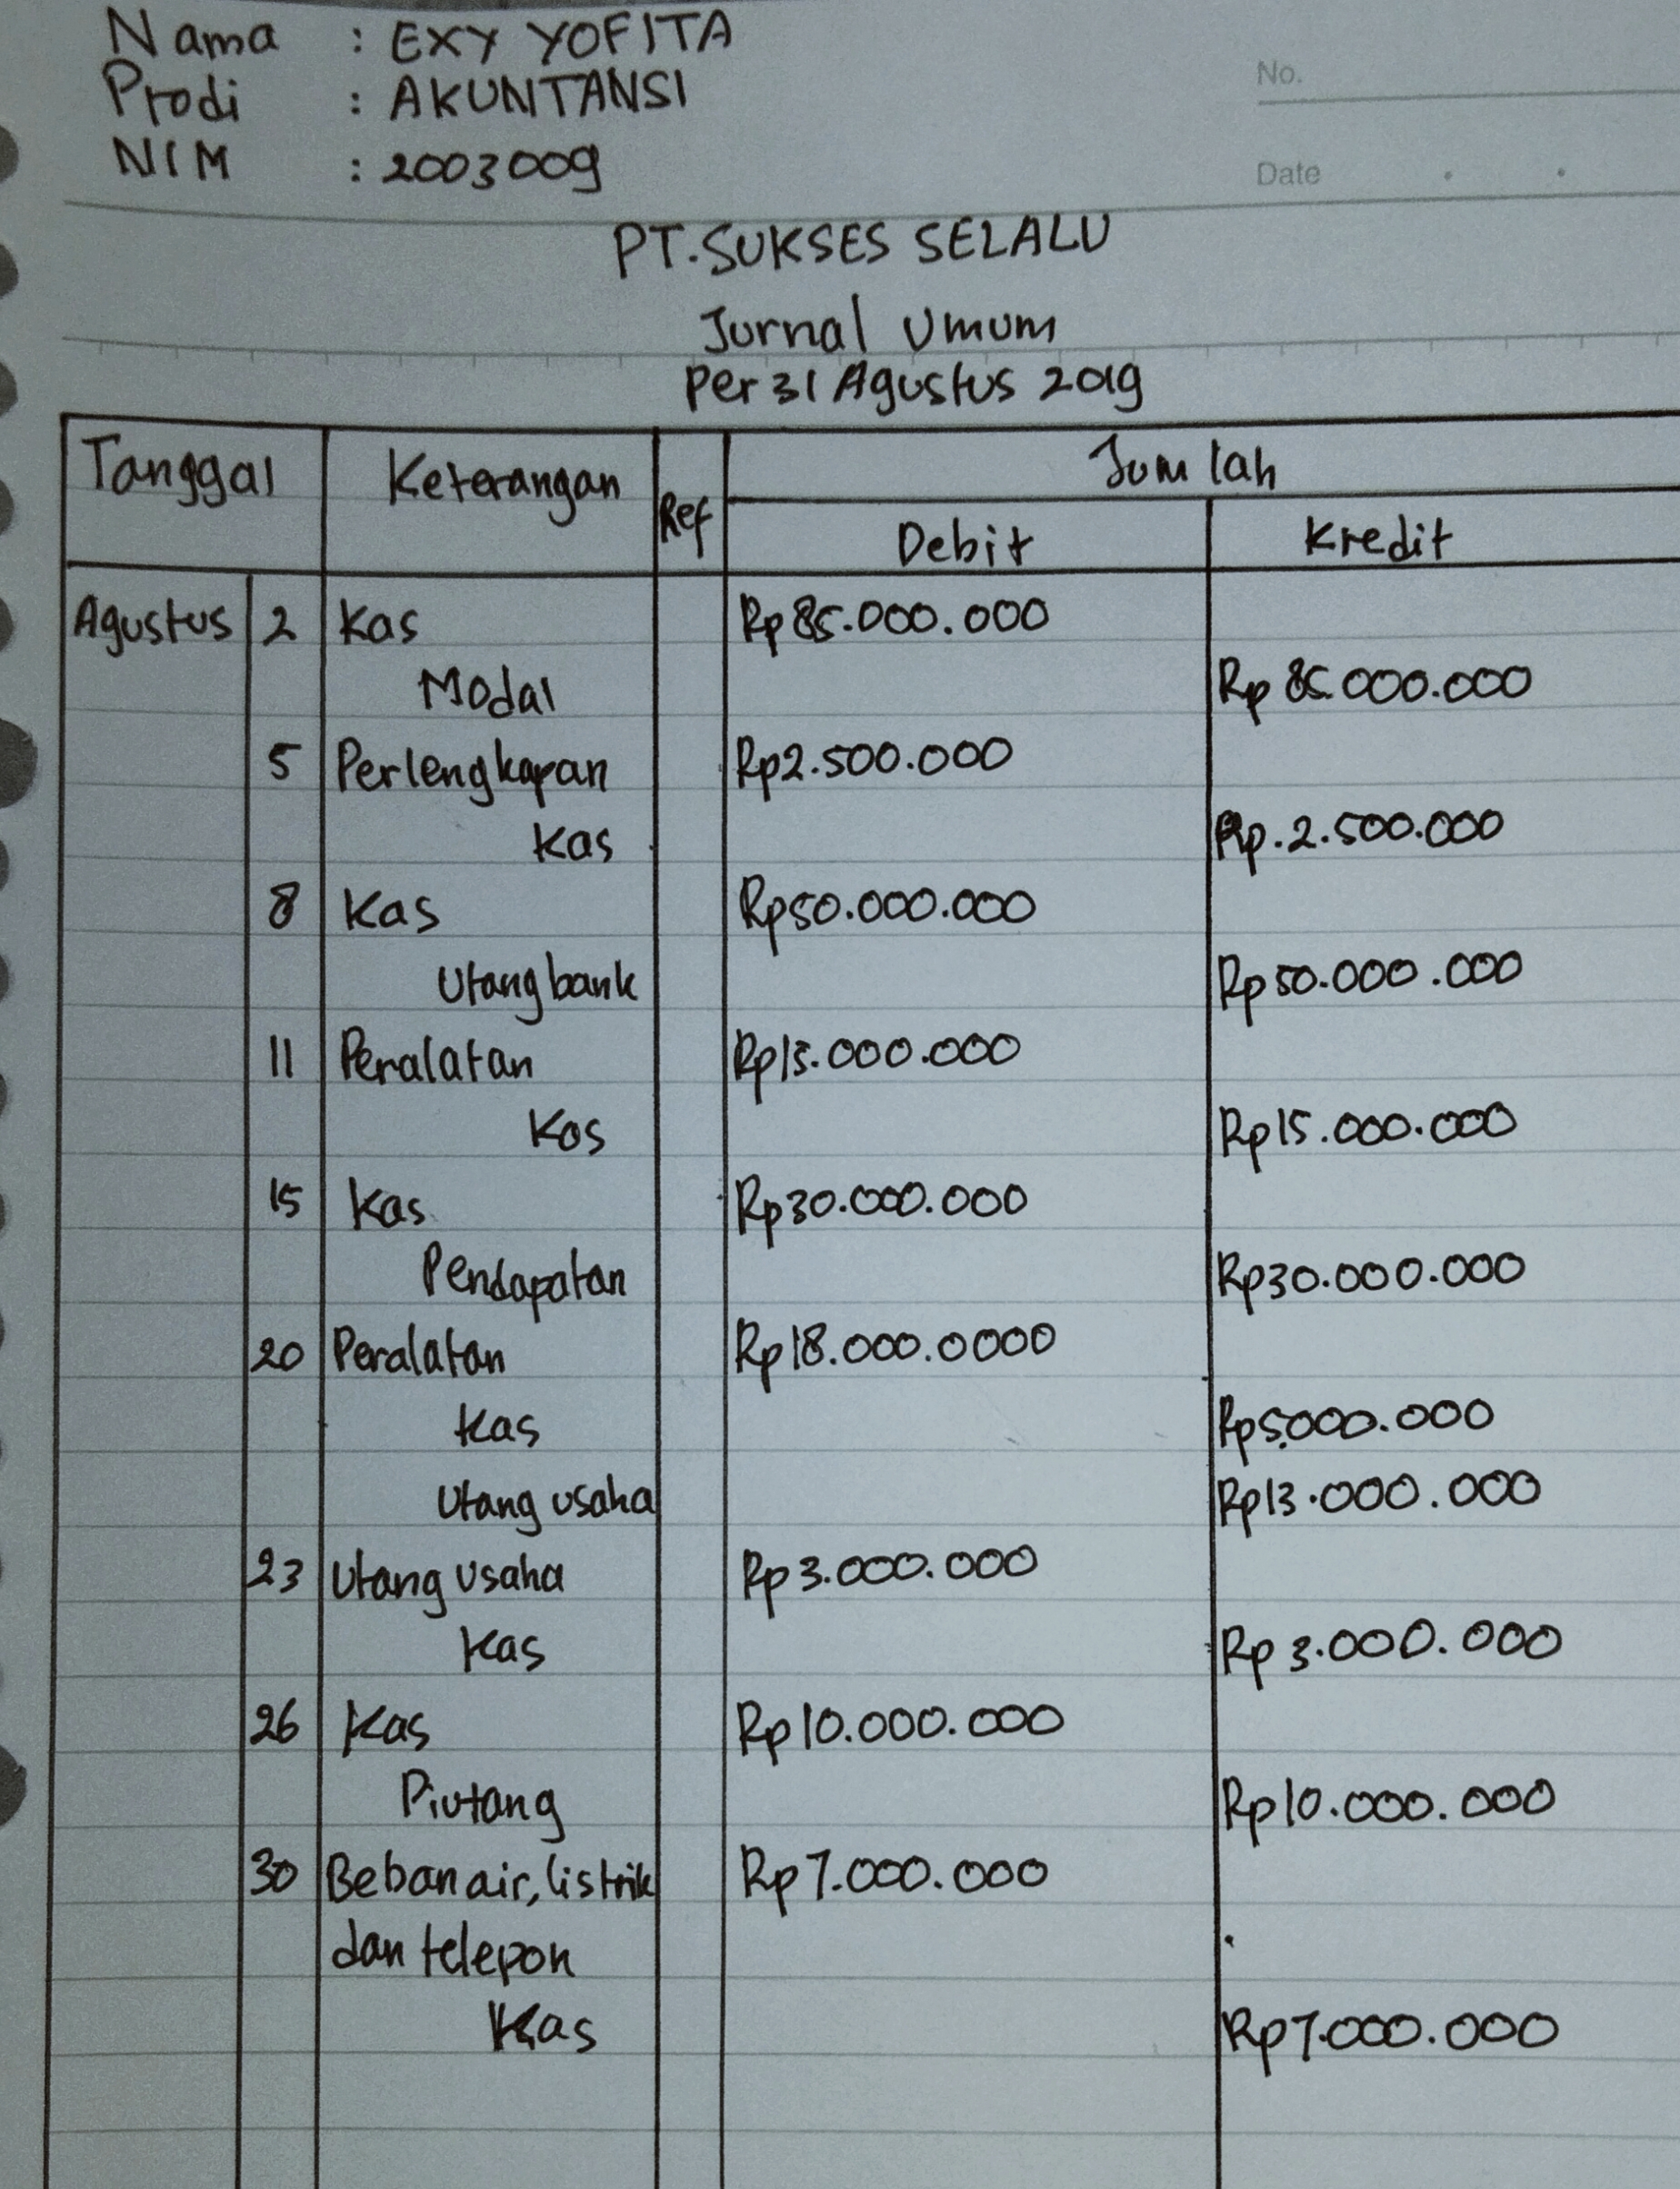 Nama : EXY YOFITA
No.
Prodi : AKUNTANSI
NIM : 2003009
Date
PT.SUKSES SELALU
Jurnal Umum
Per 31 Agustus 2019
Tanggal Keterangan Ref Jumlah
Debit Kredit
Agustus 2 Kas Rp 85.000.000
Modal Rp 85.000.000
5 Perlengkapan Rp2.500.000
Kas Rp.2.500.000
8 Kas Rp50.000.000
Utang bank Rp50.000.000
11 Peralatan Rp15.000.000
Kas Rp15.000.000
15 Kas Rp30.000.000
Pendapatan Rp30.000.000
20 Peralatan Rp18.000.0000
Kas Rp5.000.000
Utang usaha Rp13.000.000
23 Utang usaha Rp 3.000.000
Kas Rp 3.000.000
26 Kas Rp10.000.000
Piutang Rp10.000.000
30 Beban air, listrik Rp7.000.000
dan telepon
Kas Rp7.000.000